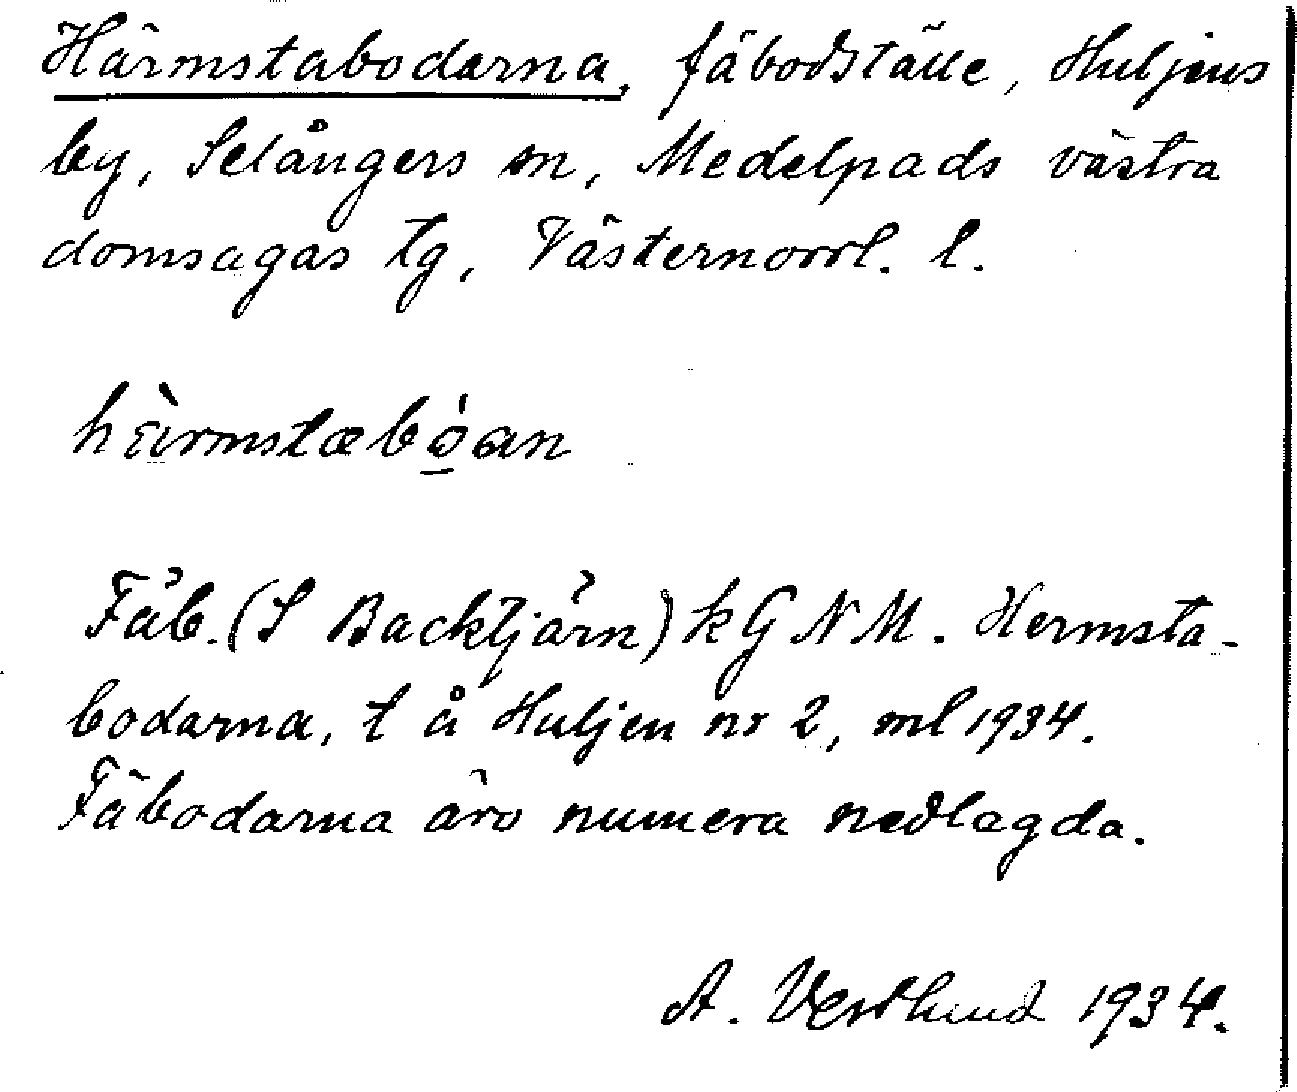 Härmstabodarna, fäbodställe, Huljens
by, Selångers sn, Medelpads västra
domsagas tg, Västernorrl. l.
hä̀rmstæbǫ́an
Fäb. (S Backtjärn) k G N M. Hermsta-
bodarna, t å Huljen nr 2, ml 1934.
Fäbodarna äro numera nedlagda.
A. Vestlund 1934.